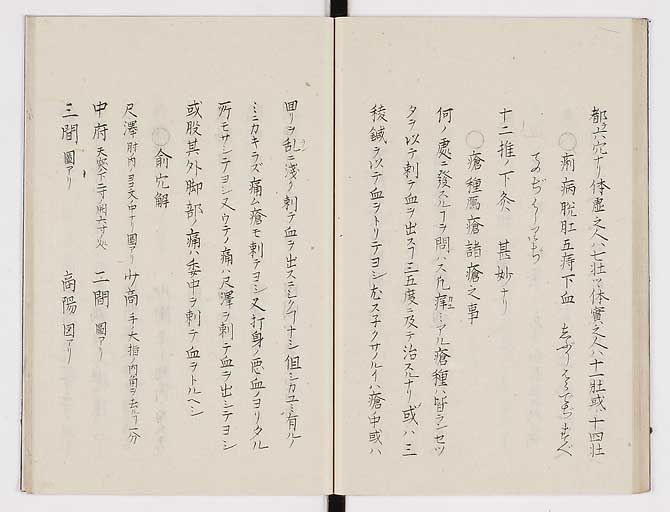 都合六穴ナリ体虚之人ハ七壮ツヽ体實之人ハ十一壮或ハ十四壮
〇痢病脱肛五痔下血
十二推ノ下灸 甚妙ナリ
〇瘡種萬瘡諸瘡之事
何ノ處ニ發スルヲ問ハス凡痒ミアル瘡種ハ皆ランセツ
タヲ以テ刺テ血ヲ出スフ三五度ニ及テ治スルナリ或ハ三
稜鍼ヲ以テ血ヲトリテヨシ
ハ瘡中或ハ
回リヲ乱ニ浅ク刺テ血ヲ出スニシクフナシ但シカユミ有ルノ
ミニカギラズ痛ム瘡モ刺テヨシ又打身ノ悪血ノヨリタル
所モサシテヨシ又ウデノ痛ハ尺澤ヲ刺テ血ヲ出シテヨシ
或股其外脚部ノ痛ハ委中ヲ刺テ血ヲトルヘシ
〇俞穴解
尺澤 肘内ノヨコ文ノ中ナリ圖アリ 少商 手ノ大指ノ内角ヲ去ルフ一分
中府 二間 圖アリ
三間 圖アリ 商陽 図アリ